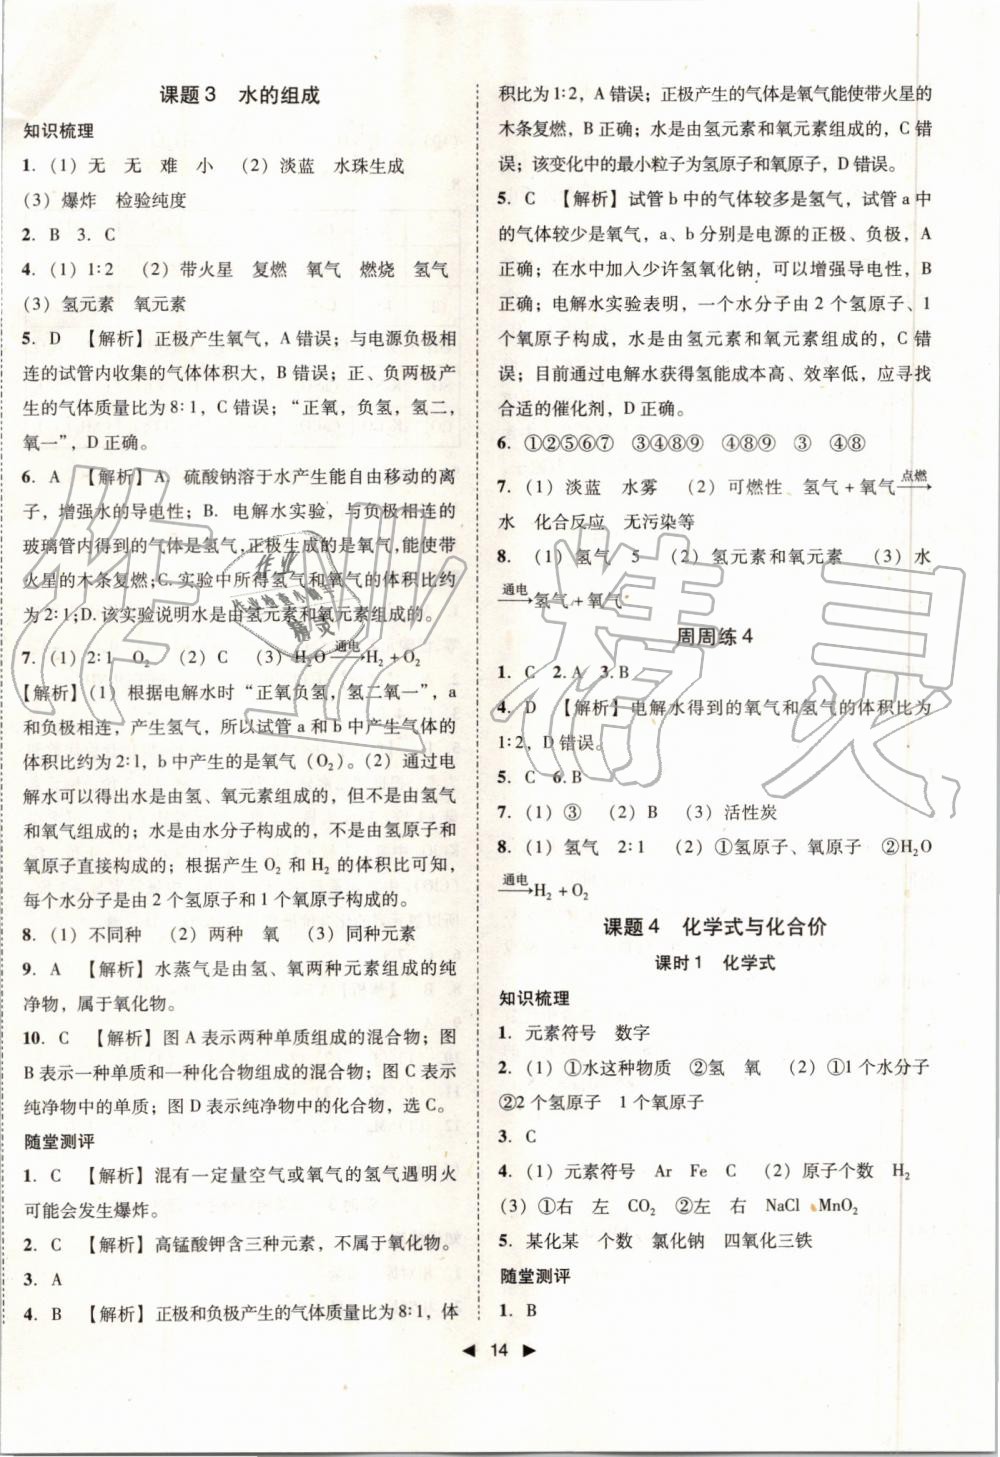 课题3 水的组成
知识梳理
1. (1) 无 无 难 小 (2) 淡蓝 水珠生成
(3) 爆炸 检验纯度
2. B 3. C
4. (1) 1∶2 (2) 带火星 复燃 氧气 燃烧 氢气
(3) 氢元素 氧元素
5. D 【解析】正极产生氧气，A错误；与电源负极相
连的试管内收集的气体体积大，B错误；正、负两极产
生的气体质量比为8∶1，C错误；“正氧，负氢，氢二，
氧一”，D正确。
6. A 【解析】A. 硫酸钠溶于水产生能自由移动的离
子，增强水的导电性；B. 电解水实验，与负极相连的
玻璃管内得到的气体是氢气，正极生成的氧气，能使带
火星的木条复燃；C. 实验中所得氢气和氧气的体积比约
为2∶1；D. 该实验说明水是由氢元素和氧元素组成的。
7. (1) 2∶1 O₂ (2) C (3) H₂O 通电→ H₂ + O₂
【解析】(1) 根据电解水时“正氧负氢，氢二氧一”，a
和负极相连，产生氢气，所以试管a和b中产生气体的
体积比约为2∶1，b中产生的是氧气（O₂）。(2) 通过电
解水可以得出水是由氢、氧元素组成的，但不是由氢气
和氧气组成的；水是由水分子构成的，不是由氢原子和
氧原子直接构成的；根据产生O₂和H₂的体积比可知，
每个水分子是由2个氢原子和1个氧原子构成的。
8. (1) 不同种 (2) 两种 氧 (3) 同种元素
9. A 【解析】水蒸气是由氢、氧两种元素组成的纯
净物，属于氧化物。
10. C 【解析】图A表示两种单质组成的混合物；图
B表示一种单质和一种化合物组成的混合物；图C表示
纯净物中的单质；图D表示纯净物中的化合物，选C。
随堂测评
1. C 【解析】混有一定量空气或氧气的氢气遇明火
可能会发生爆炸。
2. C 【解析】高锰酸钾含三种元素，不属于氧化物。
3. A
4. B 【解析】正极和负极产生的气体质量比为8∶1，体
积比为1∶2，A错误；正极产生的气体是氧气能使带火星的
木条复燃，B正确；水是由氢元素和氧元素组成的，C错
误；该变化中的最小粒子为氢原子和氧原子，D错误。
5. C 【解析】试管b中的气体较多是氢气，试管a中
的气体较少是氧气，a、b分别是电源的正极、负极，A
正确；在水中加入少许氢氧化钠，可以增强导电性，B
正确；电解水实验表明，一个水分子由2个氢原子、1
个氧原子构成，水是由氢元素和氧元素组成的，C错
误；目前通过电解水获得氢能成本高、效率低，应寻找
合适的催化剂，D正确。
6. ①②⑤⑥⑦ ③④⑧⑨ ④⑧⑨ ③ ④⑧
7. (1) 淡蓝 水雾 (2) 可燃性 氢气 + 氧气 点燃→
水 化合反应 无污染等
8. (1) 氢气 5 (2) 氢元素和氧元素 (3) 水
通电→ 氢气 + 氧气
周周练4
1. C 2. A 3. B
4. D 【解析】电解水得到的氧气和氢气的体积比为
1∶2，D错误。
5. C 6. B
7. (1) ③ (2) B (3) 活性炭
8. (1) 氢气 2∶1 (2) ①氢原子、氧原子 ②H₂O
通电→ H₂ + O₂
课题4 化学式与化合价
课时1 化学式
知识梳理
1. 元素符号 数字
2. (1) ①水这种物质 ②氢 氧 (2) ①1个水分子
②2个氢原子 1个氧原子
3. C
4. (1) 元素符号 Ar Fe C (2) 原子个数 H₂
(3) ①右 左 CO₂ ②左 右 NaCl MnO₂
5. 某化某 个数 氯化钠 四氧化三铁
随堂测评
1. B
◀ 14 ▶
作业精灵